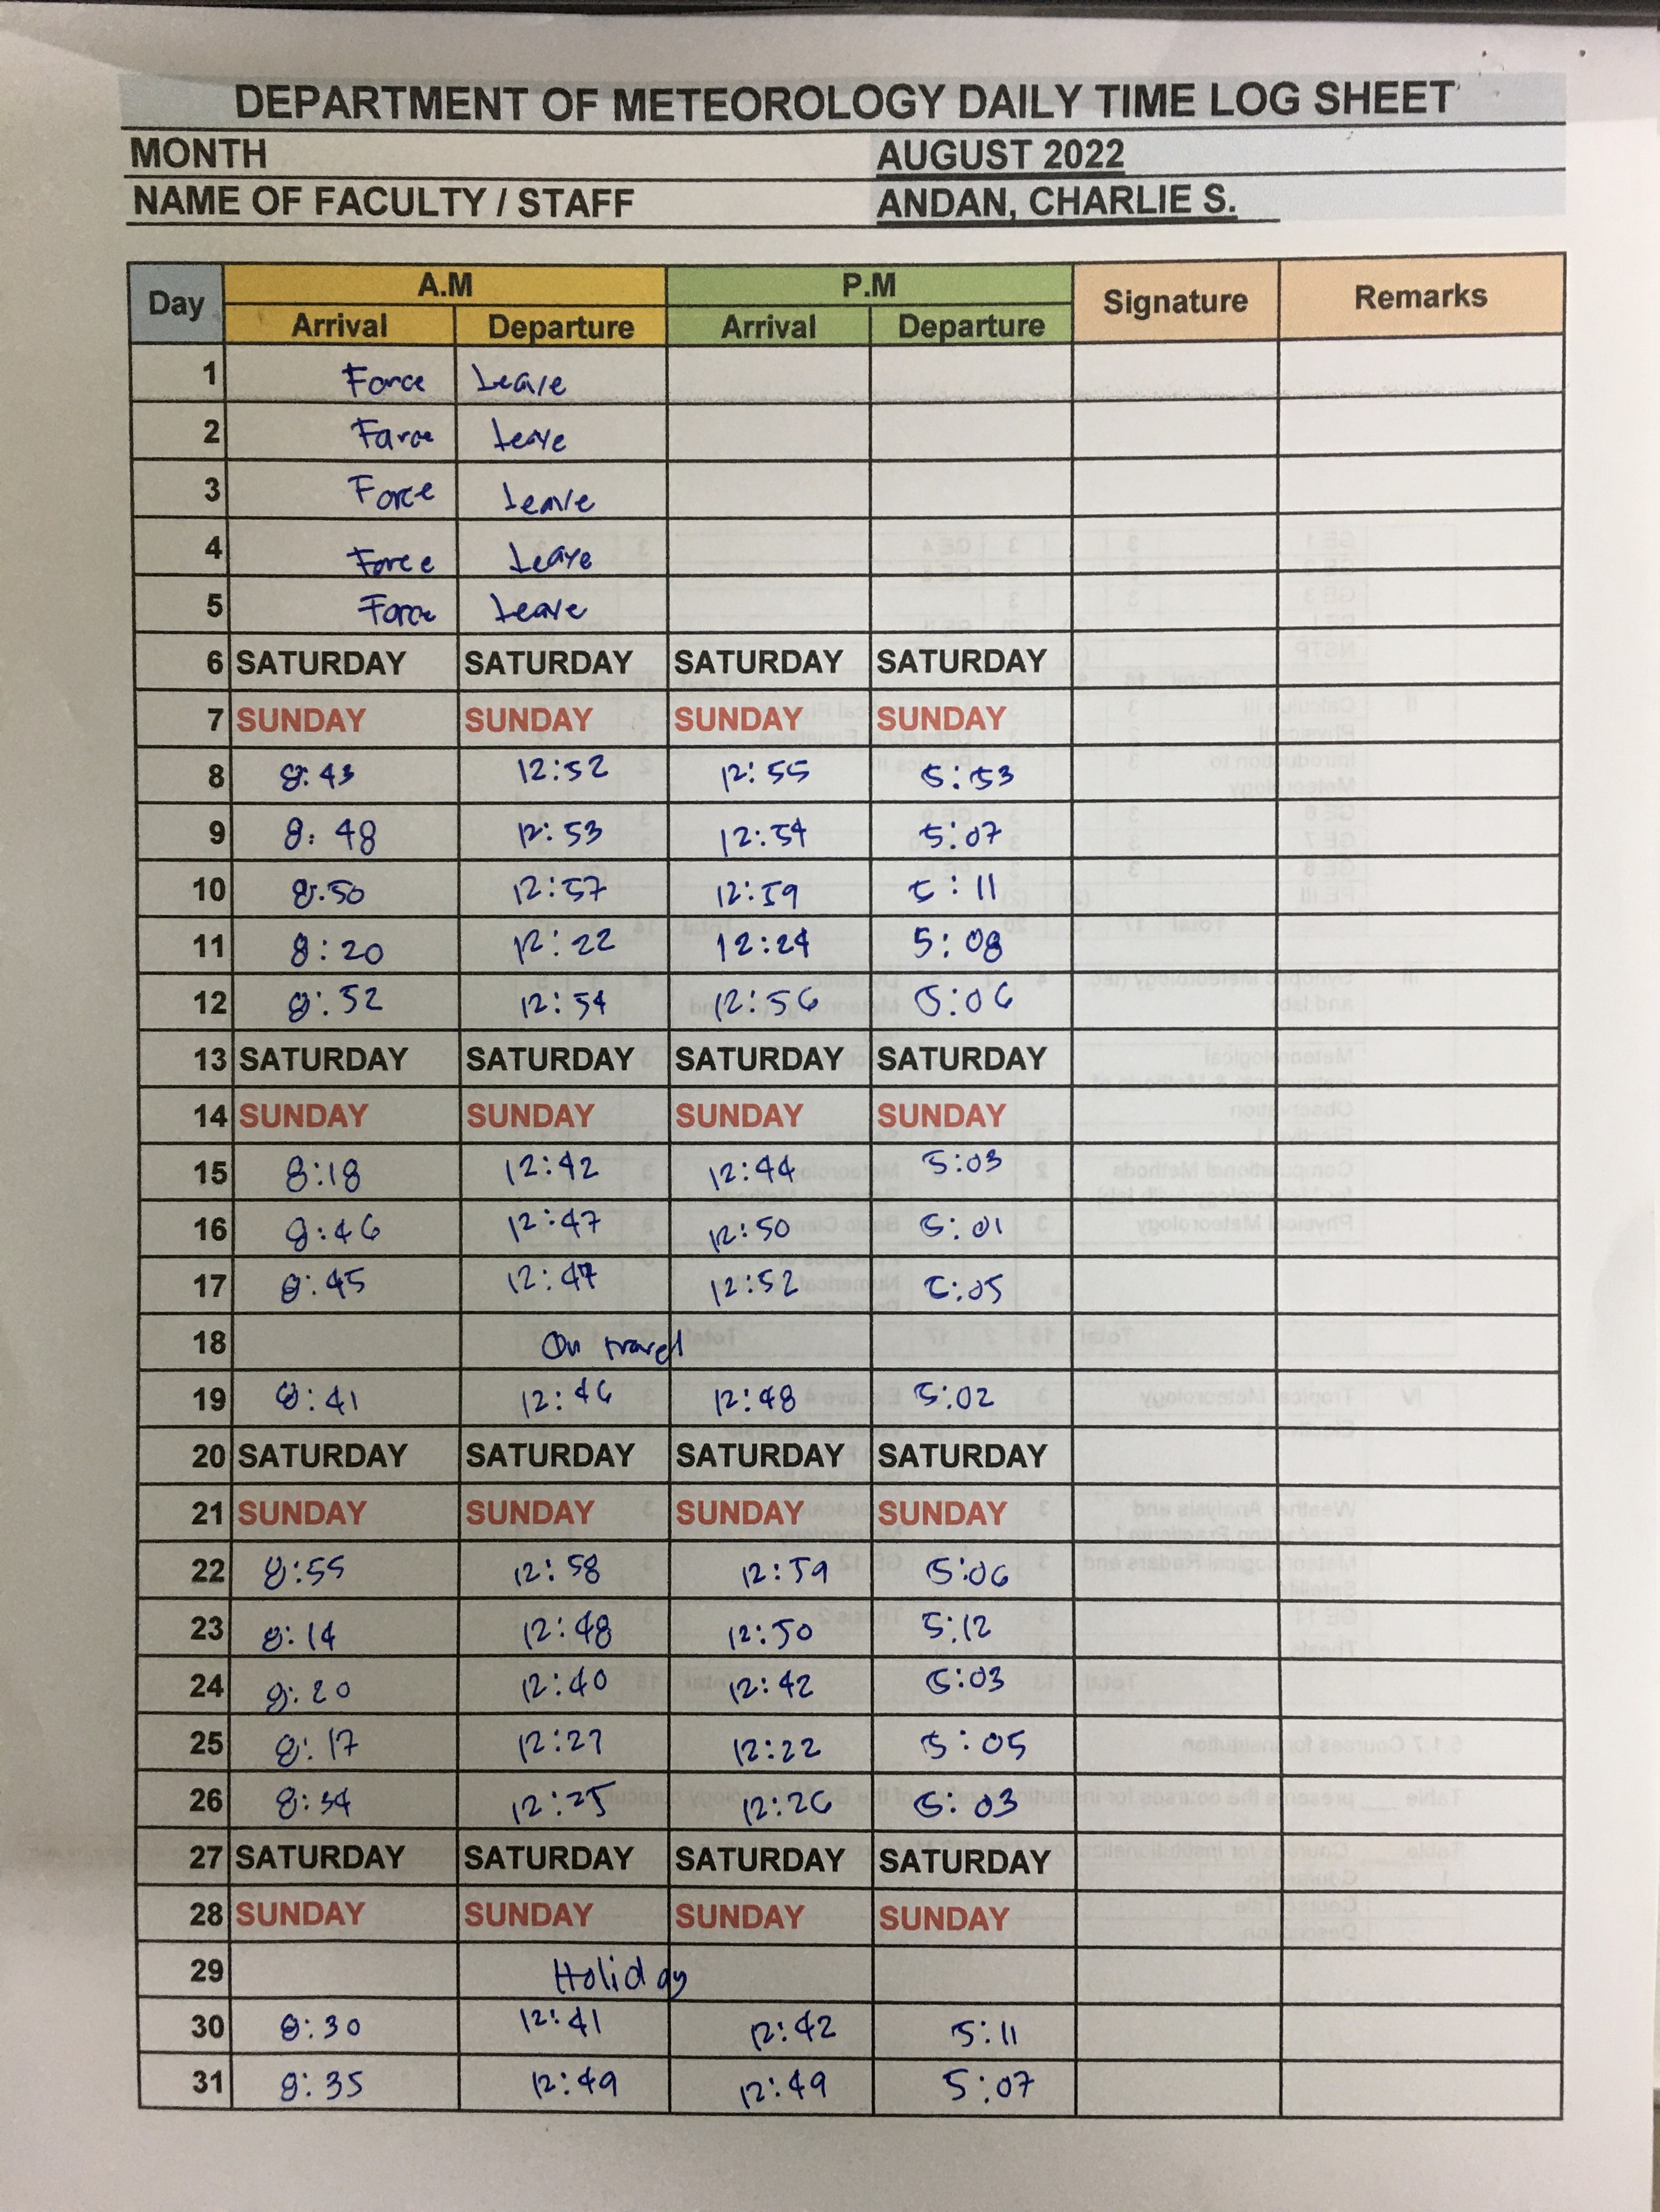 DEPARTMENT OF METEOROLOGY DAILY TIME LOG SHEET
MONTH AUGUST 2022
NAME OF FACULTY / STAFF ANDAN, CHARLIE S.
Day A.M P.M Signature Remarks
Arrival Departure Arrival Departure
1 Force Leave
2 Force Leave
3 Force Leave
4 Force Leave
5 Force Leave
6 SATURDAY SATURDAY SATURDAY SATURDAY
7 SUNDAY SUNDAY SUNDAY SUNDAY
8 8:43 12:52 12:55 5:53
9 8:48 12:53 12:54 5:07
10 8:50 12:57 12:59 5:11
11 8:20 12:22 12:24 5:08
12 8:52 12:54 12:56 5:06
13 SATURDAY SATURDAY SATURDAY SATURDAY
14 SUNDAY SUNDAY SUNDAY SUNDAY
15 8:18 12:42 12:44 5:03
16 8:46 12:47 12:50 5:01
17 8:45 12:47 12:52 5:05
18 On travel
19 8:41 12:46 12:48 5:02
20 SATURDAY SATURDAY SATURDAY SATURDAY
21 SUNDAY SUNDAY SUNDAY SUNDAY
22 8:55 12:58 12:59 5:06
23 8:14 12:48 12:50 5:12
24 8:20 12:40 12:42 5:03
25 8:17 12:22 5:05
26 8:34 12:25 12:26 5:03
27 SATURDAY SATURDAY SATURDAY SATURDAY
28 SUNDAY SUNDAY SUNDAY SUNDAY
29 Holiday
30 8:30 12:41 12:42 5:11
31 8:35 12:49 12:49 5:07